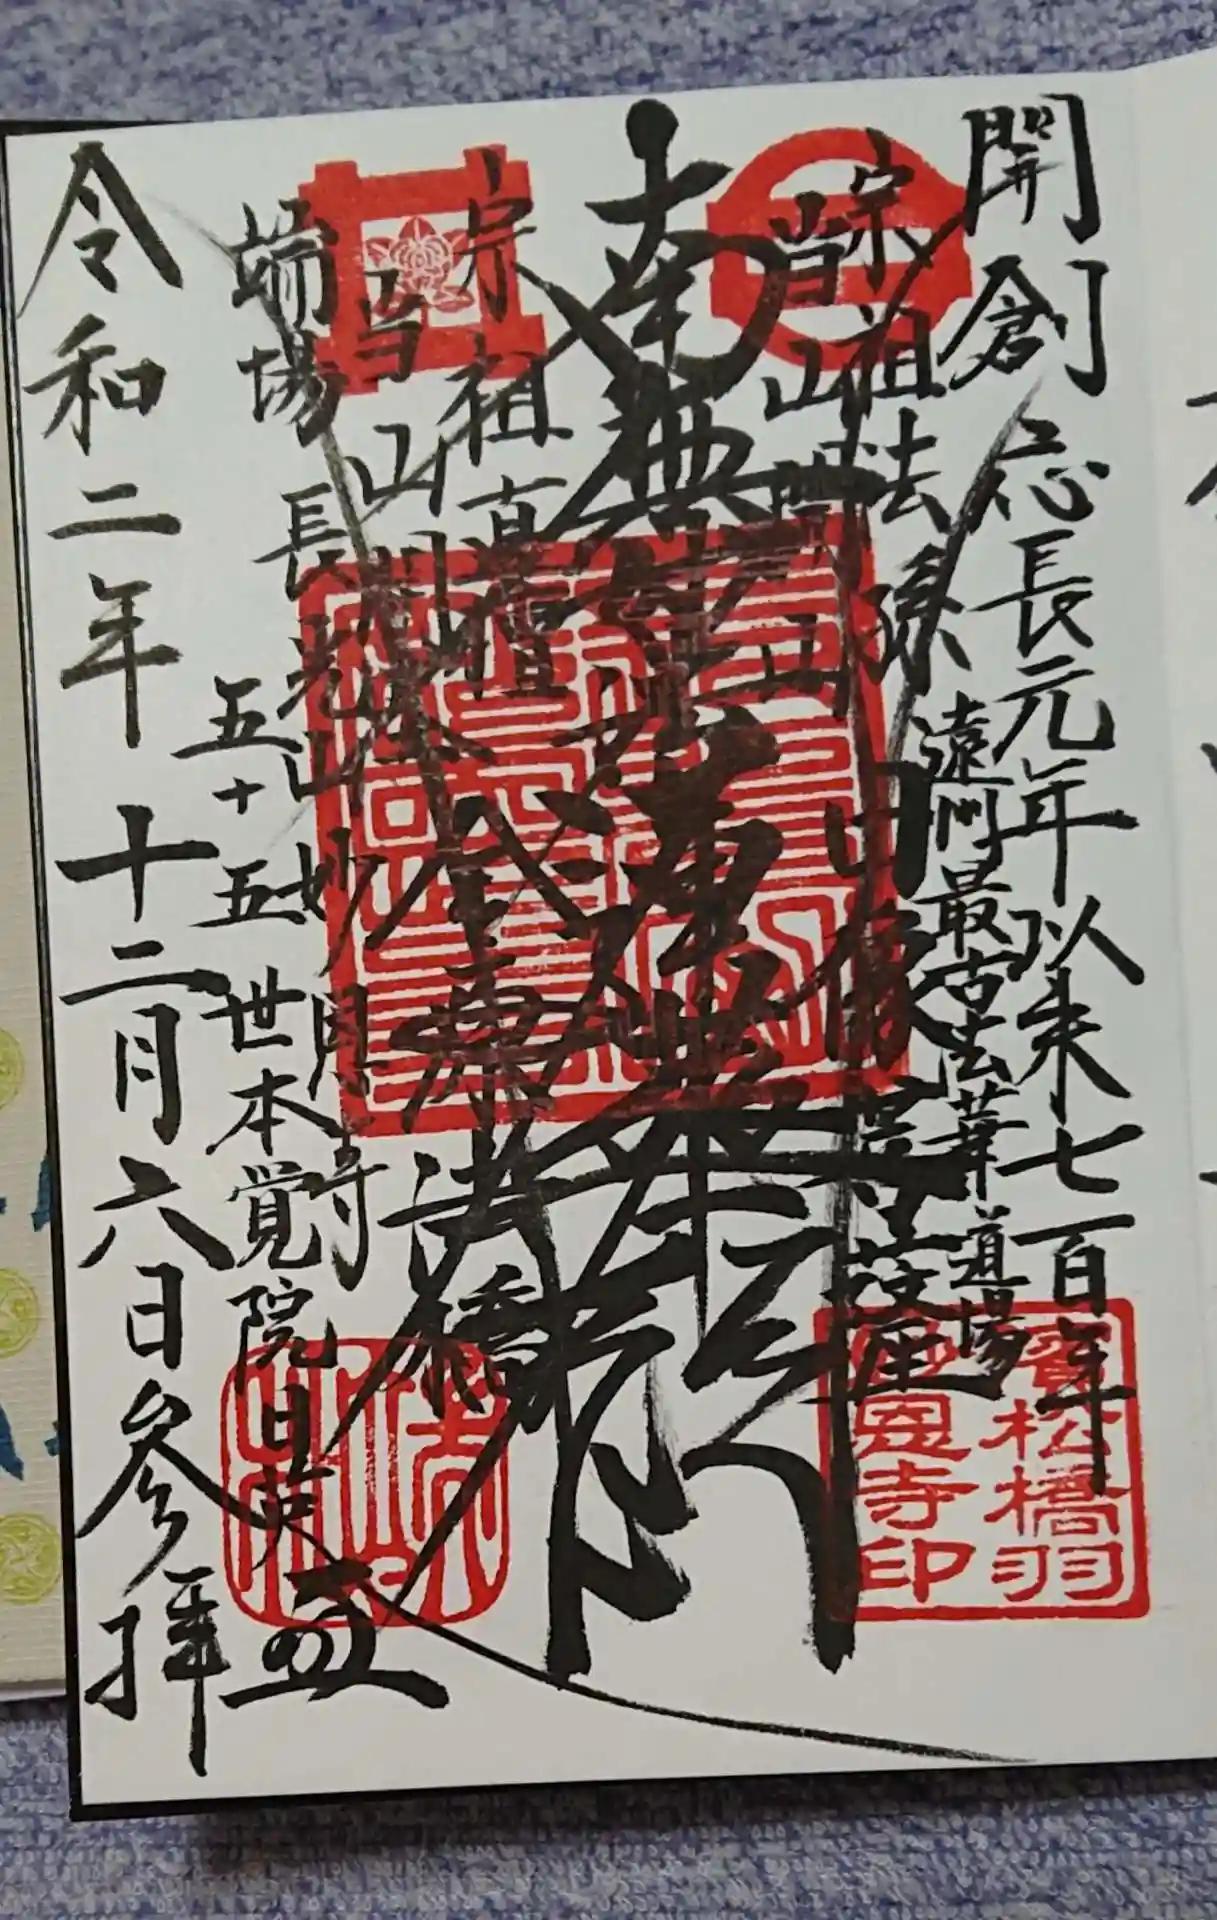 開創 応長元年以来七百年
遠州最古法華道場
宗祖法孫日像菩薩
当山開山
南無妙法蓮華経
宗祖直檀金原法橋
当山開基
端場 長光山妙恩寺
五十五世本覚院日英
令和二年十二月六日参拝
松橋羽
恩寺印